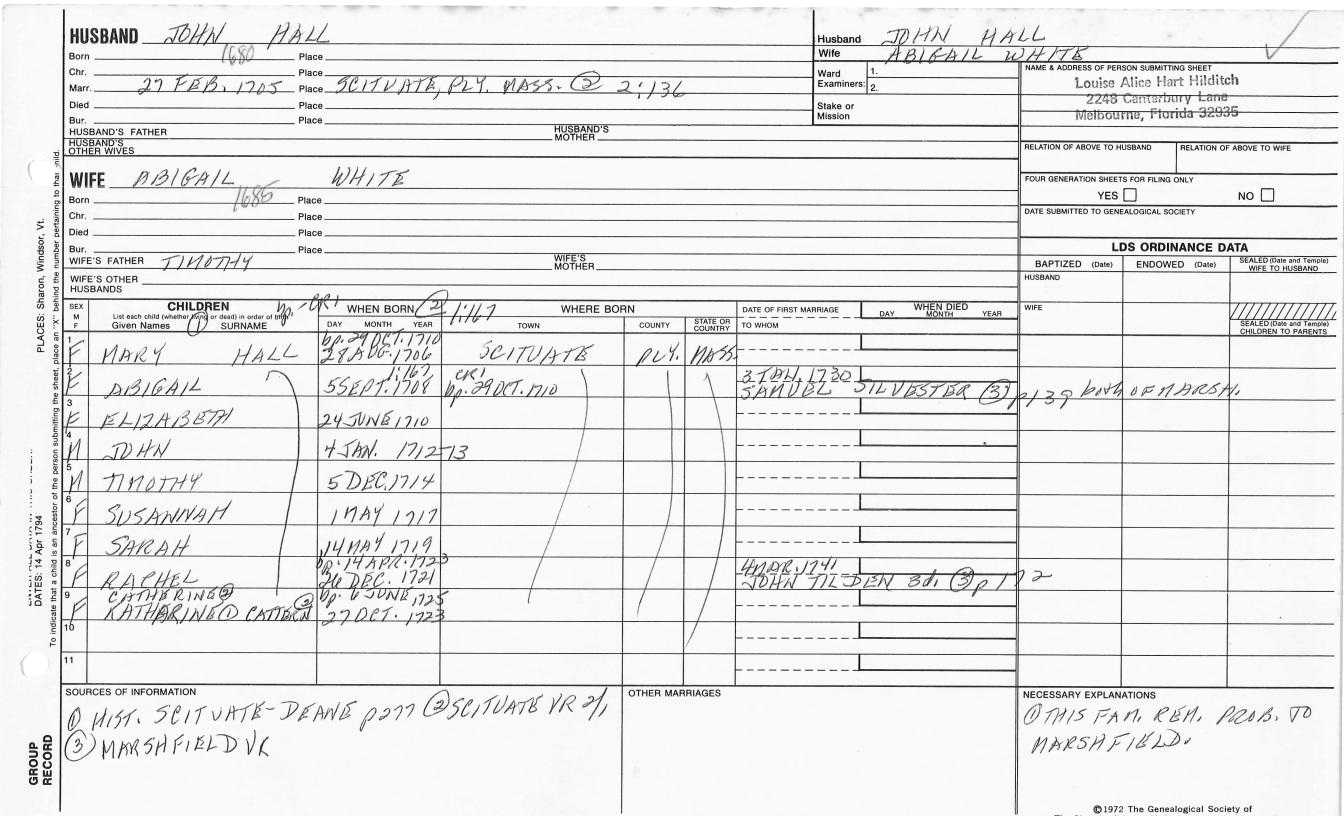 HUSBAND JOHN HALL
Born 1680 Place
Chr. Place
Marr. 27 FEB. 1705 Place SCITUATE, PLY. MASS. ② 2:136
Died Place
Bur. Place
HUSBAND'S FATHER HUSBAND'S MOTHER
HUSBAND'S OTHER WIVES
Husband JOHN HALL
Wife ABIGAIL WHITE
Ward Examiners: 1.
2.
Stake or Mission
NAME & ADDRESS OF PERSON SUBMITTING SHEET
Louise Alice Hart Hilditch
2248 Canterbury Lane
Melbourne, Florida 32935
RELATION OF ABOVE TO HUSBAND RELATION OF ABOVE TO WIFE
FOUR GENERATION SHEETS FOR FILING ONLY
YES NO
DATE SUBMITTED TO GENEALOGICAL SOCIETY
WIFE ABIGAIL WHITE
Born 1685 Place
Chr. Place
Died Place
Bur. Place
WIFE'S FATHER TIMOTHY WIFE'S MOTHER
WIFE'S OTHER HUSBANDS
LDS ORDINANCE DATA
BAPTIZED (Date) ENDOWED (Date) SEALED (Date and Temple) WIFE TO HUSBAND
HUSBAND
WIFE
SEALED (Date and Temple) CHILDREN TO PARENTS
SEX M F
CHILDREN bp.-CR1
List each child (whether living or dead) in order of birth
Given Names ① SURNAME
WHEN BORN ② 1:167
DAY MONTH YEAR
WHERE BORN
TOWN COUNTY STATE OR COUNTRY
DATE OF FIRST MARRIAGE
TO WHOM
WHEN DIED
DAY MONTH YEAR
bp. 29 OCT. 1710
1 F MARY HALL 28 AUG. 1706 SCITUATE PLY. MASS.
1:167 CR1 3 JAN. 1730
2 F ABIGAIL 5 SEPT. 1708 bp. 29 OCT. 1710 SAMUEL SILVESTER ③ p139 both OF MARSH.
3 F ELIZABETH 24 JUNE 1710
4 M JOHN 4 JAN. 1712-13
5 M TIMOTHY 5 DEC. 1714
6 F SUSANNAH 1 MAY 1717
7 F SARAH 14 MAY 1719
bp. 14 APR. 1723 4 MAR. 1741
8 F RACHEL 26 DEC. 1721 JOHN TILDEN 3d. ③ p172
CATHERING ② bp. 6 JUNE 1725
9 F KATHARINE ① CATTERN ② 27 OCT. 1723
10
11
SOURCES OF INFORMATION
① HIST. SCITUATE-DEANE p277 ② SCITUATE VR 2/1
③ MARSHFIELD VR
OTHER MARRIAGES
NECESSARY EXPLANATIONS
① THIS FAM. REM. PROB. TO
MARSHFIELD.
©1972 The Genealogical Society of
PLACES: Sharon, Windsor, Vt.
DATES: 14 Apr 1794
To indicate that a child is an ancestor of the person submitting the sheet, place an "X" behind the number pertaining to that child.
GROUP
RECORD